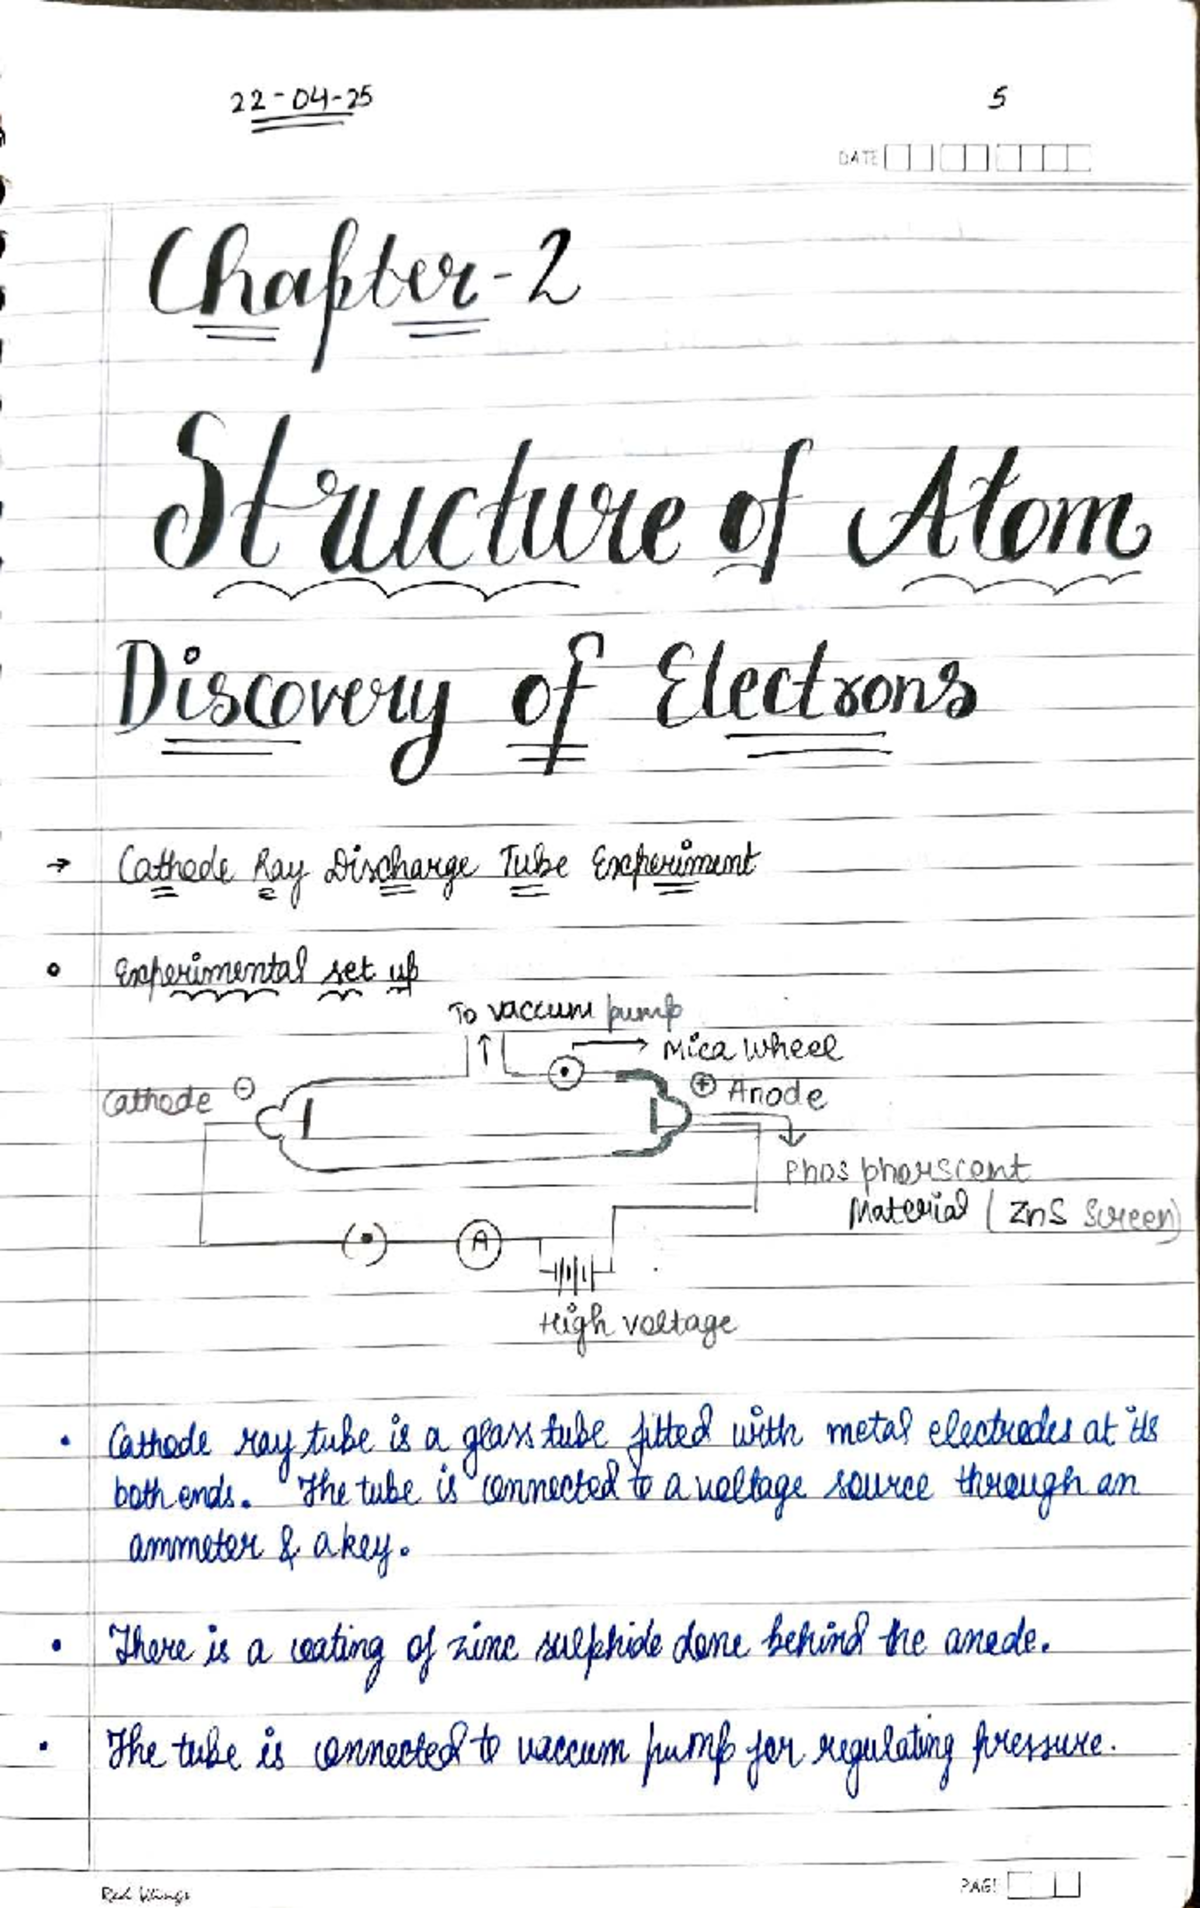 22-04-25
5
DATE
Chapter-2
Structure of Atom
Discovery of Electrons
→ Cathode Ray Discharge Tube Experiment
Experimental set up
To vaccum pump
↑
→ Mica Wheel
Cathode ⊖
⊕ Anode
Phosphorscent
Material (ZnS Screen)
(•)
A
High voltage
• Cathode ray tube is a glass tube fitted with metal electrodes at its
both ends. The tube is connected to a voltage source through an
ammeter & a key.
• There is a coating of zinc sulphide done behind the anode.
• The tube is connected to vaccum pump for regulating pressure.
PAGE